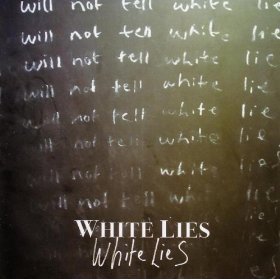 will not tell white lie
will not tell white lie
will not tell white lie
will not tell white lie
will not tell white lie
will not tell white lie
will not tell white lie
will not tell white lie
WHITE LIES
White Lies